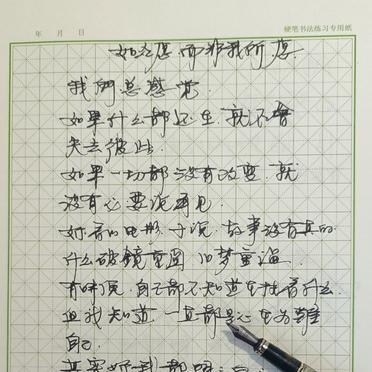 硬笔书法练习专用纸
年 月 日
如之愿 而非我所愿
我們总感觉
如果什么都还在 就不會
失去彼此
如果一切都没有改变 就
没有必要说再见
好看的电影 小说 故事没有真的
什么破镜重圆 旧梦重温
有时候 自己都不知道在执着什么
但我知道 一直都是心在为難
自己
其实你我都明白